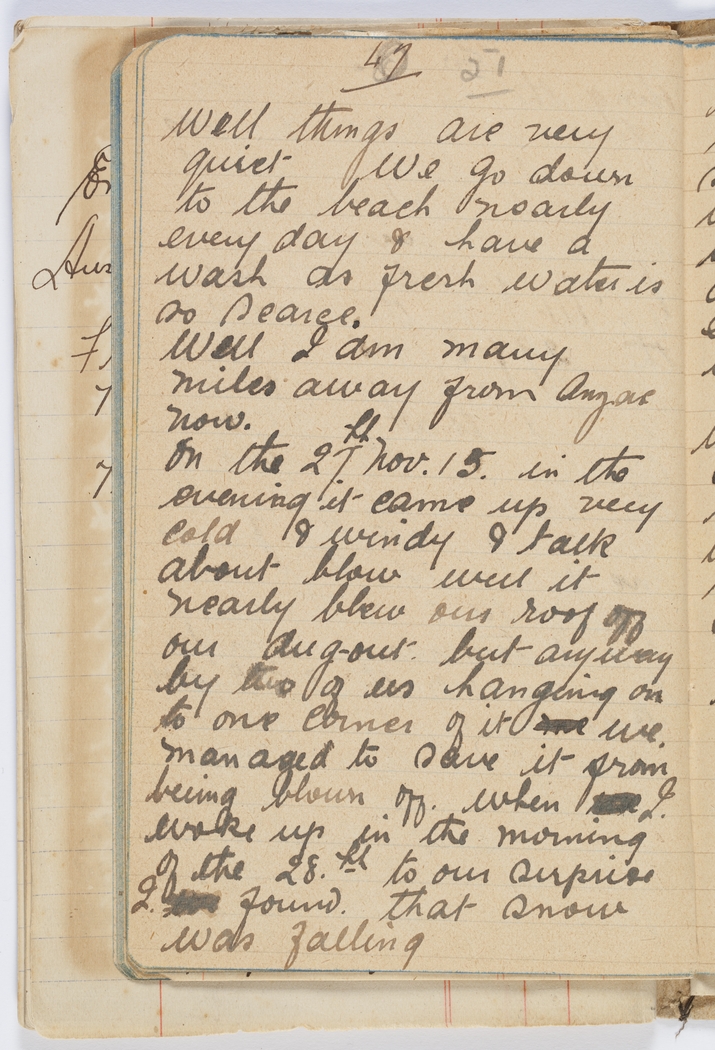 47
51
Well things are very
quiet We go down
to the beach nearly
every day & have a
wash as fresh water is
so scarce.
Well I am many
miles away from Anzac
now.
On the 27th Nov. 15. in the
evening it came up very
cold & windy & talk
about blow well it
nearly blew our roof off
our dug-out. but anyway
by two of us hanging on
to one corner of it we.
managed to save it from
being blown off. when I.
woke up in the morning
of the 28.th to our surprise
I. found. that snow
was falling